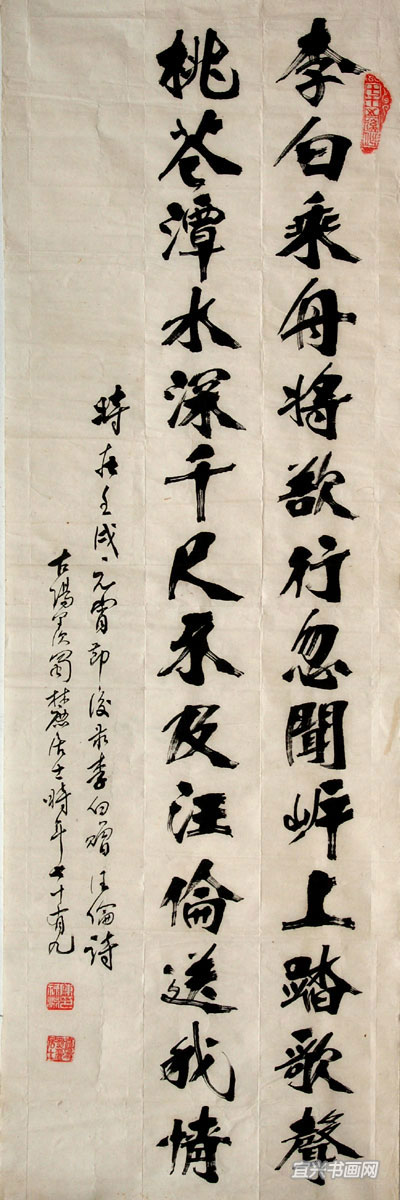 李白乘舟将欲行忽聞岸上踏歌聲
桃花潭水深千尺不及汪倫送我情
時在壬戌元宵節後录李白贈汪倫詩
古陽羡蜀麓居士時年七十有九
宜兴书画网